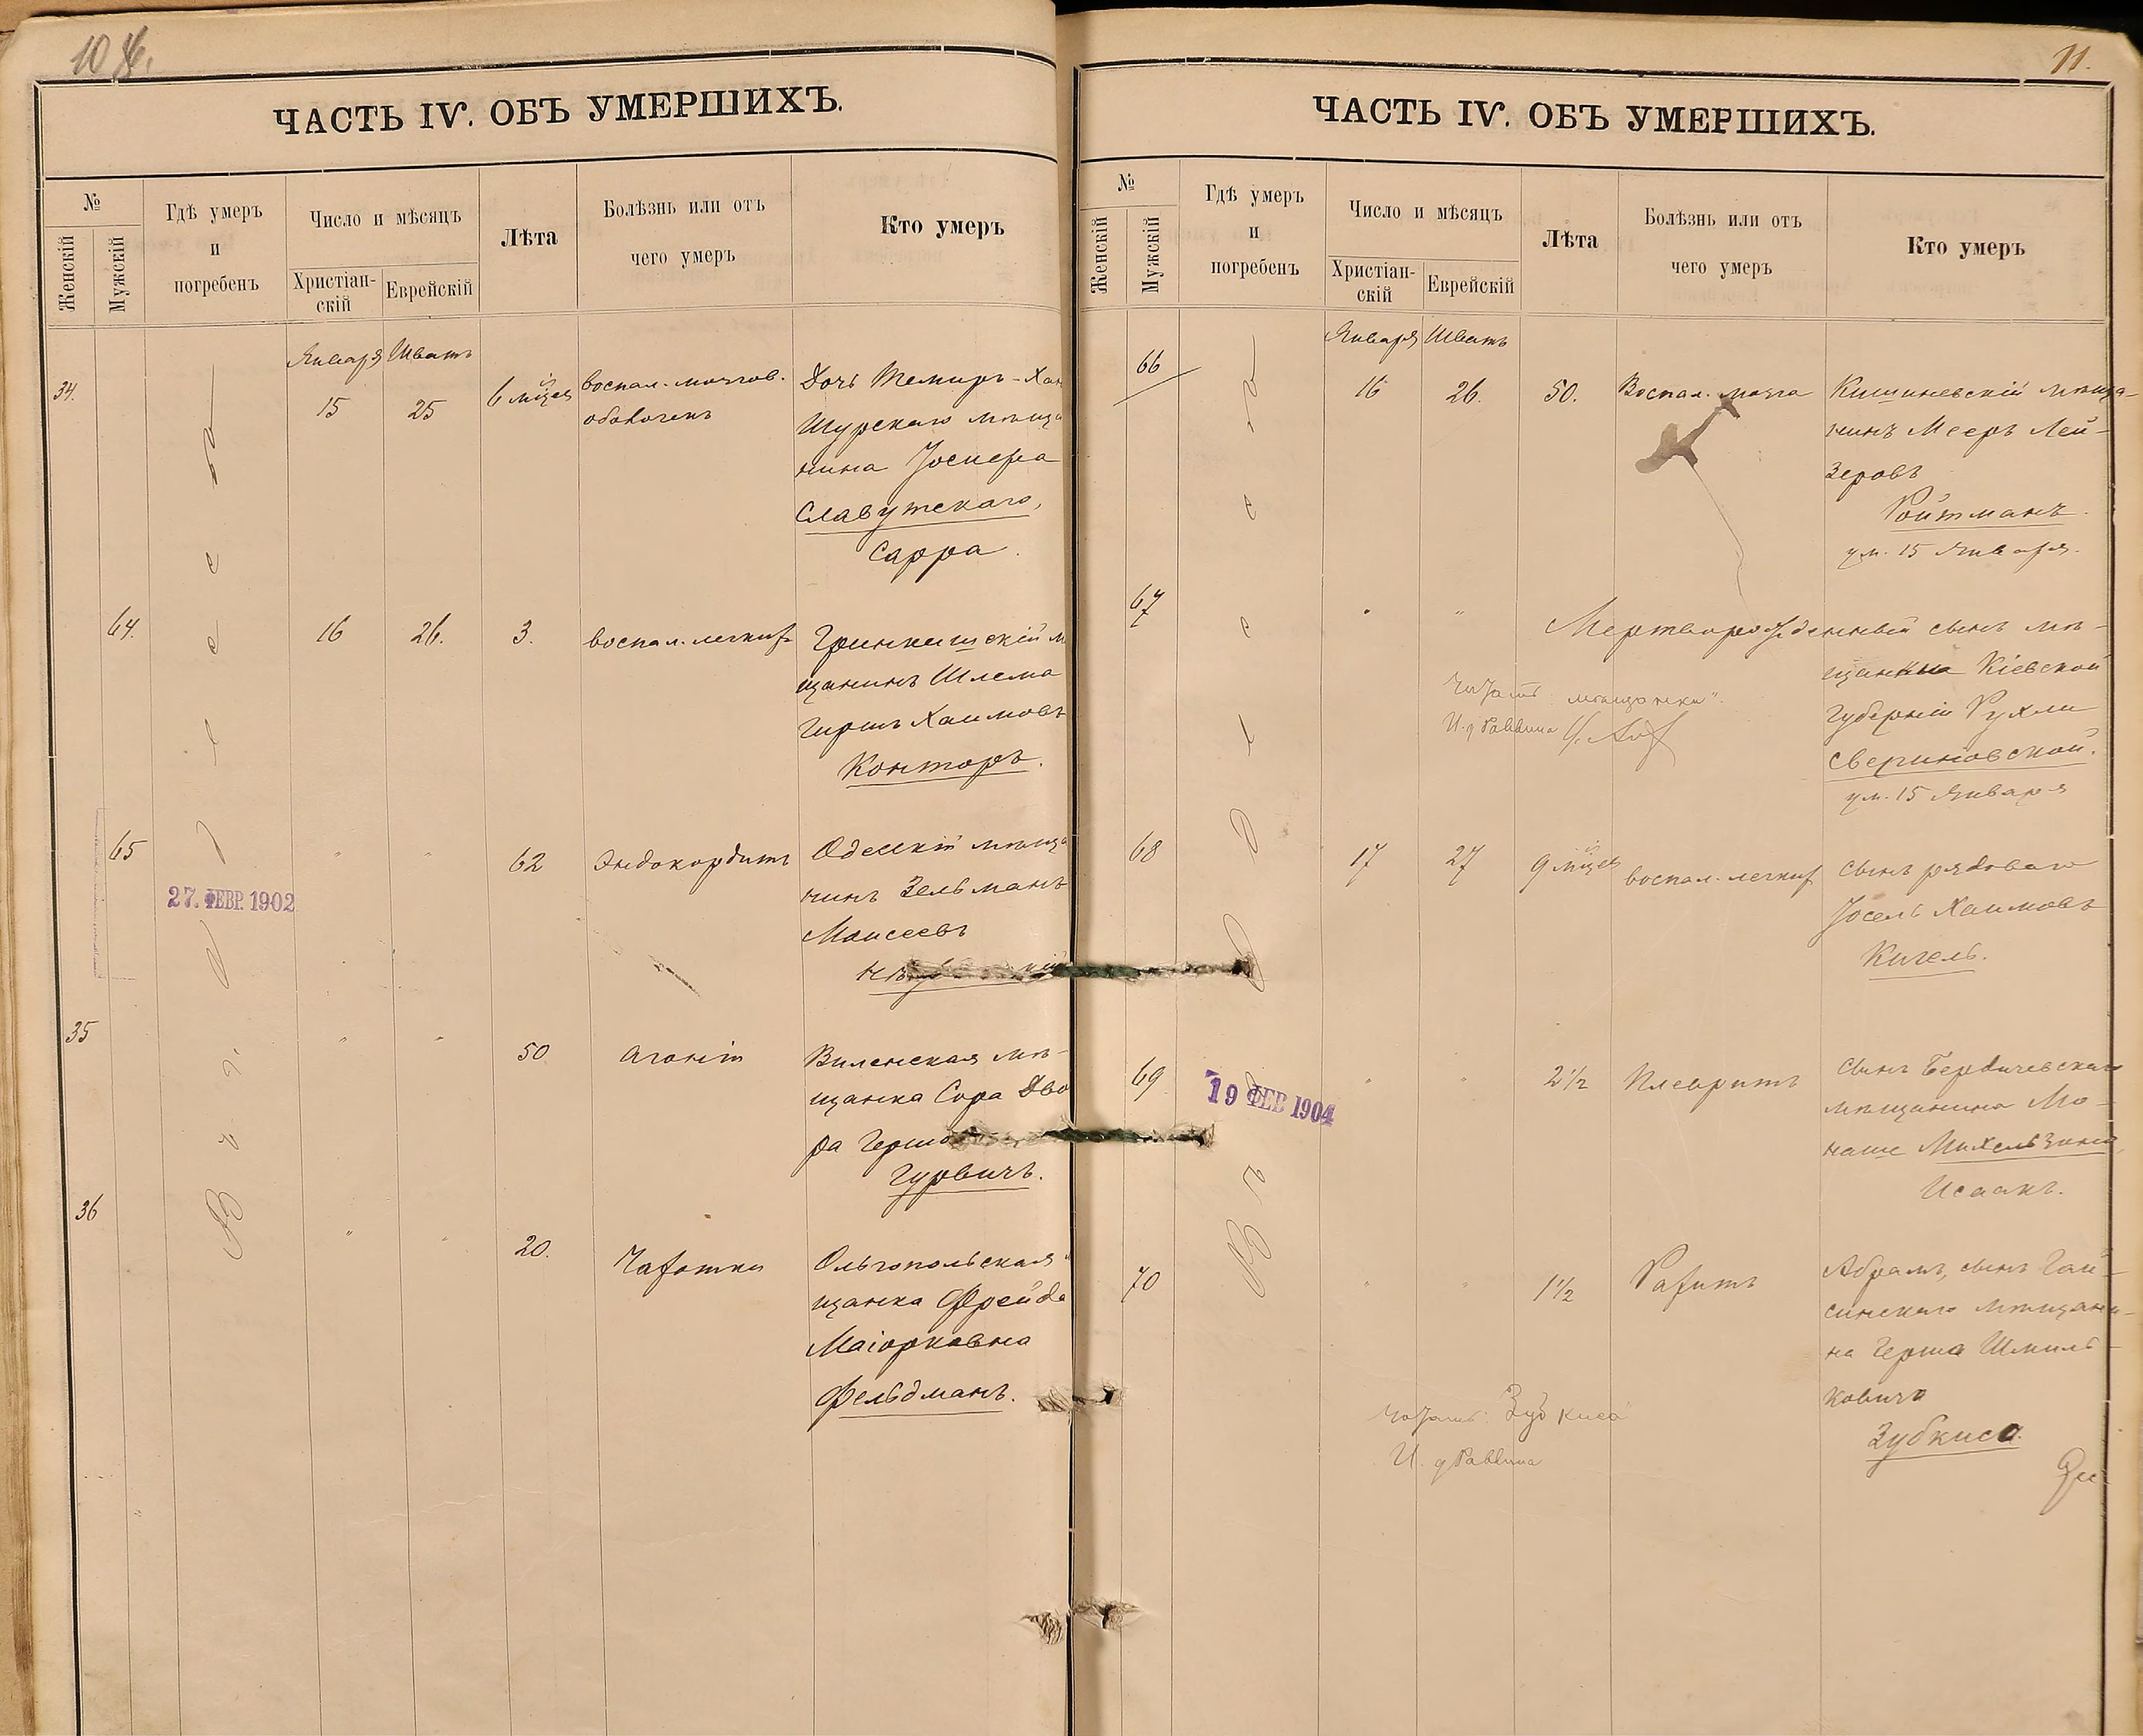 ЧАСТЬ IV. ОБЪ УМЕРШИХЪ.
№
Женскій
Мужскій
Гдѣ умеръ
и
погребенъ
Число и мѣсяцъ
Христіан-
скій
Еврейскій
Лѣта
Болѣзнь или отъ
чего умеръ
Кто умеръ
Января Шватъ
34. 15 25 6 мцев воспал. мозгов.
оболочекъ
Дочь Темиръ-Хан
Шурскаго мѣща
нина Іосифа
Славутскаго,
Сарра.
64. 16 26. 3. воспал. легких
Гринкишскій м
щанинъ Шлема
Гиршъ Хаимовъ
Конторъ.
65 " " 62 Эндокардитъ
Одесскій мѣща
нинъ Зельманъ
Моисеевъ
27. ФЕВР. 1902
35 " " 50 Агонія
Виленская мѣ-
щанка Сора Дво
ра Герш
Гурвичъ.
36 " " 20. Чахотка
Ольгопольская
щанка Фрейда
Маіорковна
Фельдманъ.
В г. Одессѣ
11.
ЧАСТЬ IV. ОБЪ УМЕРШИХЪ.
№
Женскій
Мужскій
Гдѣ умеръ
и
погребенъ
Число и мѣсяцъ
Христіан-
скій
Еврейскій
Лѣта
Болѣзнь или отъ
чего умеръ
Кто умеръ
Января Шватъ
66 16 26. 50. Воспал. мозга
Кишиневскій мѣща-
нинъ Мееръ Лей-
зеровъ
Ройтманъ.
ум. 15 Января.
67 " " Мертворожденный сынъ мѣ-
щанки Кіевской
Губерніи Рухли
Свериновской.
ум. 15 Января
мѣщанки".
И. д Раввина
68 17 27 9 мцев воспал. легких
Сынъ рядоваго
Іосель Хаимовъ
Кигель.
69 " " 2 1/2 Плевритъ
Сынъ Бердичевскаго
мѣщанина Мо-
наше Михельзона,
Исаакъ.
19 ФЕВ 1904
70 " " 1 1/2 Рахитъ
Абрамъ, сынъ Гай-
синскаго мѣщани-
на Герша Шмиль-
ковича
Зубкиса.
Зубкиса
И. д Раввина
В г. Одессѣ